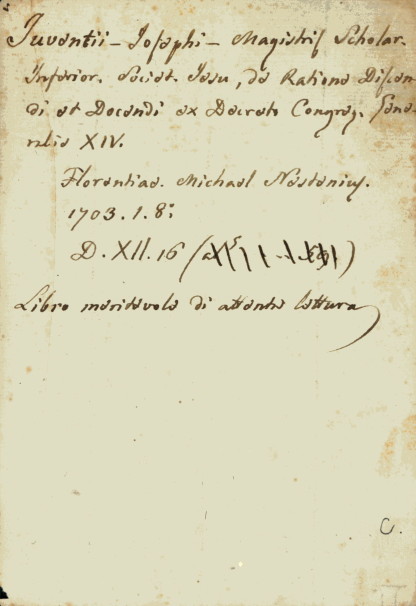 Juventii - Josephi - Magistris Scholar.
Inferior. Societ. Jesu, de Ratione Discen-
di et Docendi ex Decreto Congreg. Gene-
ralis XIV.
Florentiae. Michael Nestenius.
1703. 1. 8:
D. XII. 16 (
Libro meritevole di attenta lettura
C.